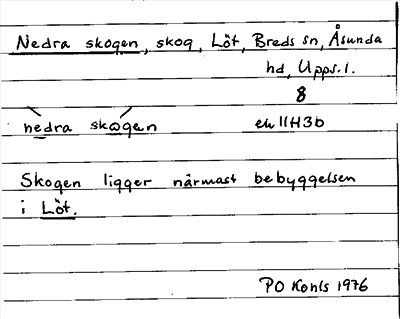 Nedra skogen, skog, Löt, Breds sn, Åsunda
hd, Upps. l.
8
nedra skogen ek 11H3b
Skogen ligger närmast bebyggelsen
i Löt.
PO Kohls 1976